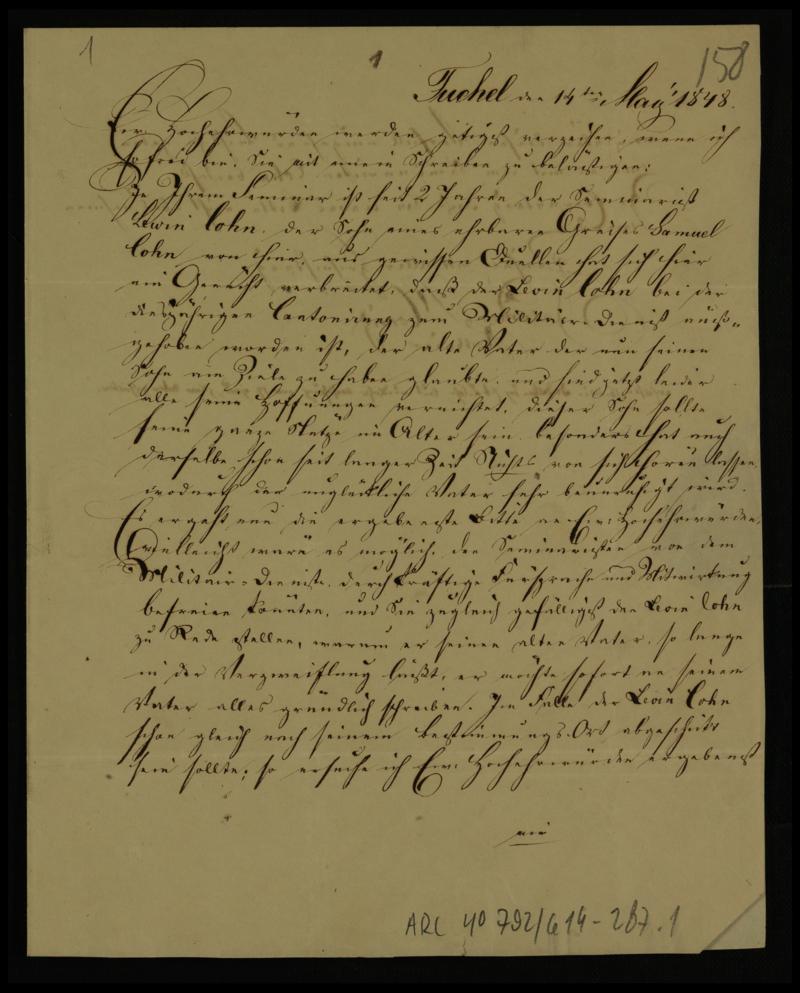 1
1
158
Tuchel den 14ten May 1848.
Ew. Hochehrwürden werden gütigst verzeihen, wenn ich
so frei bin, Sie mit mein Schreiben zu belästigen:
In Ihrem Seminar ist seit 2 Jahren der Seminarist
Lewin Cohn, der Sohn eines ehrbaren Greises Samuel
Cohn von hier, aus gewissen Quellen hat sich hier
ein Gerücht verbreitet, daß der Lewin Cohn bei der
diesjährigen Cantonirung zum Militair-Dienst auß-
gehoben worden ist, der alte Vater der nun seinen
Sohn am Ziele zu haben glaubte, und sind jetzt leider
alle seine Hoffnungen vernichtet, dieser Sohn sollte
seine ganze Stütze im Alter sein, besonders hat auch
derselbe schon seit langer Zeit Nichts von sich hören lassen,
wodurch der unglückliche Vater sehr beunruhigt wird.
Es ergeht nun die ergebenste Bitte an Ew: Hochehrwürden,
vielleicht wäre es möglich, den Seminaristen von dem
Militair-Dienste durch kräftige Fürsprache und Mitwirkung
befreien könnten, und Sie zugleich gefälligst den Lewin Cohn
zu Rede stellen, warum er seinen alten Vater so lange
in der Verzweiflung läßt, er möchte sofort an seinem
Vater alles gründlich schreiben. Im Falle der Lewin Cohn
schon gleich nach seinem Bestimmungs-Ort abgeschickt
sein sollte, so ersuche ich Ew: Hochehrwürden ergebenst
mir
ARC 40 792/G14-287.1